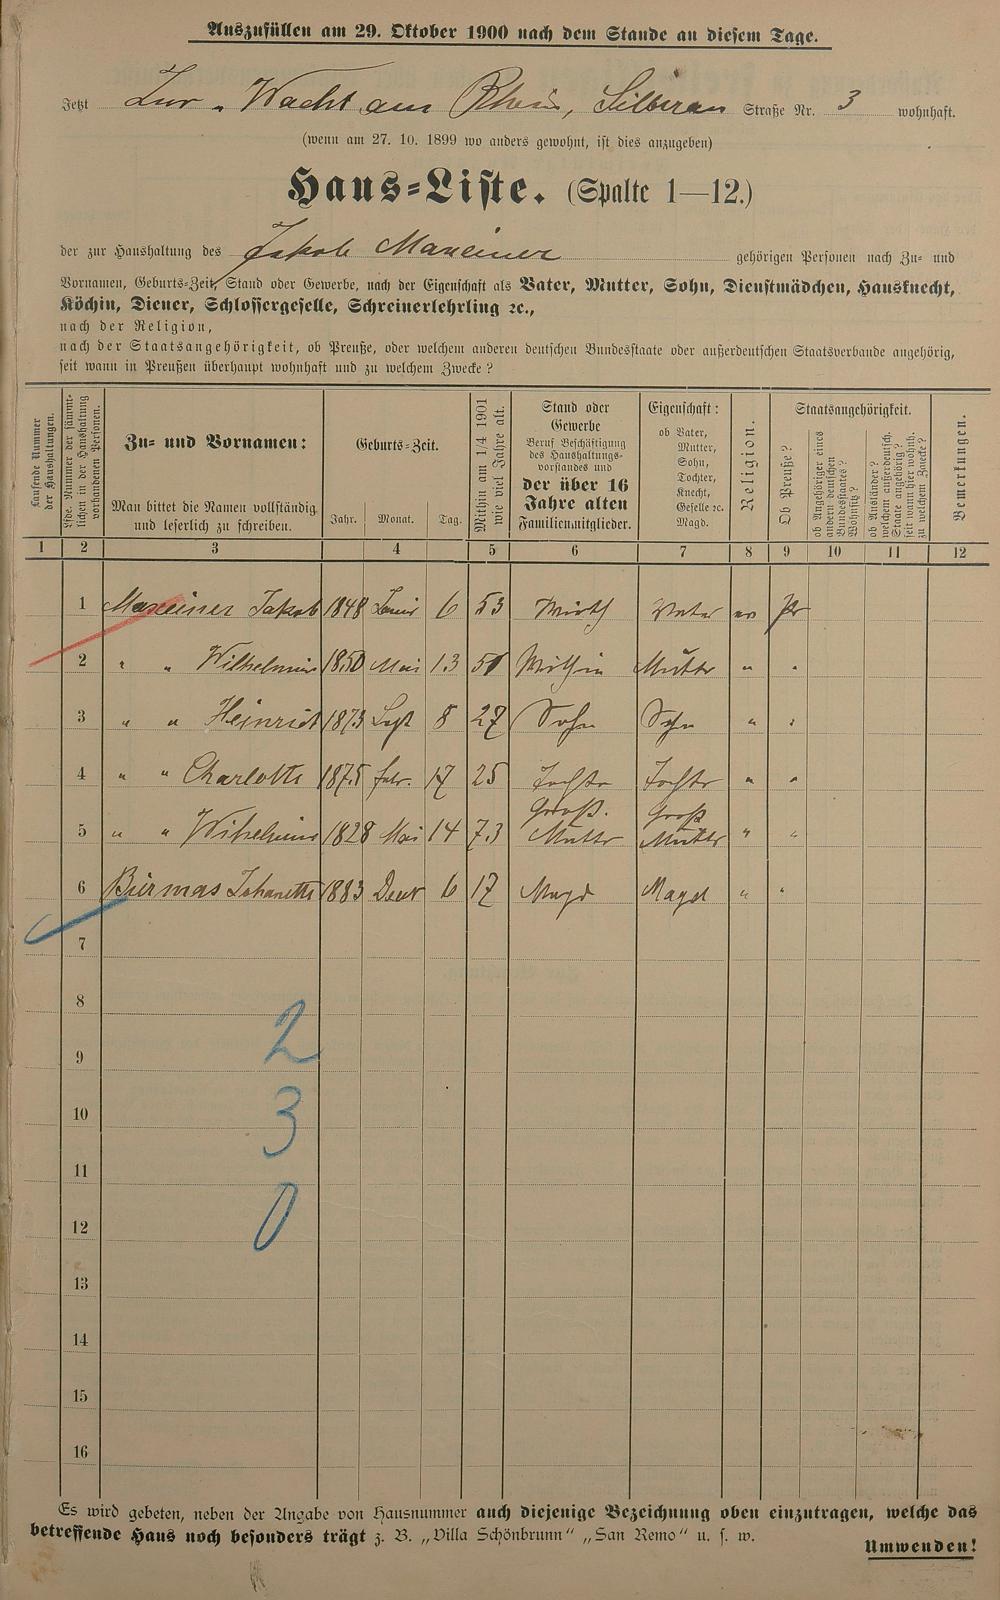 Auszufüllen am 29. Oktober 1900 nach dem Stande an diesem Tage.
Jetzt Zur „ Wacht am Rhein, Silberau Straße Nr. 3 wohnhaft.
(wenn am 27. 10. 1899 wo anders gewohnt, ist dies anzugeben)
Haus-Liste. (Spalte 1—12.)
der zur Haushaltung des Jakob Maxeiner gehörigen Personen nach Zu- und
Vornamen, Geburts-Zeit, Stand oder Gewerbe, nach der Eigenschaft als Vater, Mutter, Sohn, Dienstmädchen, Hausknecht,
Köchin, Diener, Schlossergeselle, Schreinerlehrling ꝛc.,
nach der Religion,
nach der Staatsangehörigkeit, ob Preuße, oder welchem anderen deutschen Bundesstaate oder außerdeutschen Staatsverbande angehörig,
seit wann in Preußen überhaupt wohnhaft und zu welchem Zwecke?
Laufende Nummer
der Haushaltungen.
Lfde. Nummer der sämmt-
lichen in der Haushaltung
vorhandenen Personen.
Zu- und Vornamen:
Man bittet die Namen vollständig
und leserlich zu schreiben.
Geburts-Zeit.
Jahr. Monat. Tag.
Mithin am 1/4 1901
wie viel Jahre alt.
Stand oder
Gewerbe
Beruf Beschäftigung
des Haushaltungs-
vorstandes und
der über 16
Jahre alten
Familienmitglieder.
Eigenschaft:
ob Vater,
Mutter,
Sohn,
Tochter,
Knecht,
Geselle ꝛc.
Magd.
Religion.
Staatsangehörigkeit.
Ob Preuße?
ob Angehöriger eines
andern deutschen
Bundesstaates?
Wohnsitz?
ob Ausländer?
welchem außerdeutsch.
Staate angehörig?
seit wann hier wohnh.
zu welchem Zwecke?
Bemerkungen.
1 2 3 4 5 6 7 8 9 10 11 12
1 Maxeiner Jakob 1848 6 53 Wirth Vater ev Pr
2 „ „ Wilhelmine 1850 Mai 13 50 Wirthin Mutter „ „
3 „ „ Heinrich 1873 Sept 8 27 Sohn Sohn „ „
4 „ „ Charlotte 1875 Febr. 17 25 Tochter Tochter „ „
5 „ „ Wilhelmine 1828 Mai 14 73 Groß. Mutter Groß Mutter „ „
6 Johanette 1883 6 17 Magd Magd „ „
7
8
2
9
10
3
11
12
0
13
14
15
16
Es wird gebeten, neben der Angabe von Hausnummer auch diejenige Bezeichnung oben einzutragen, welche das
betreffende Haus noch besonders trägt z. B. „Villa Schönbrunn“ „San Remo“ u. s. w.
Umwenden!